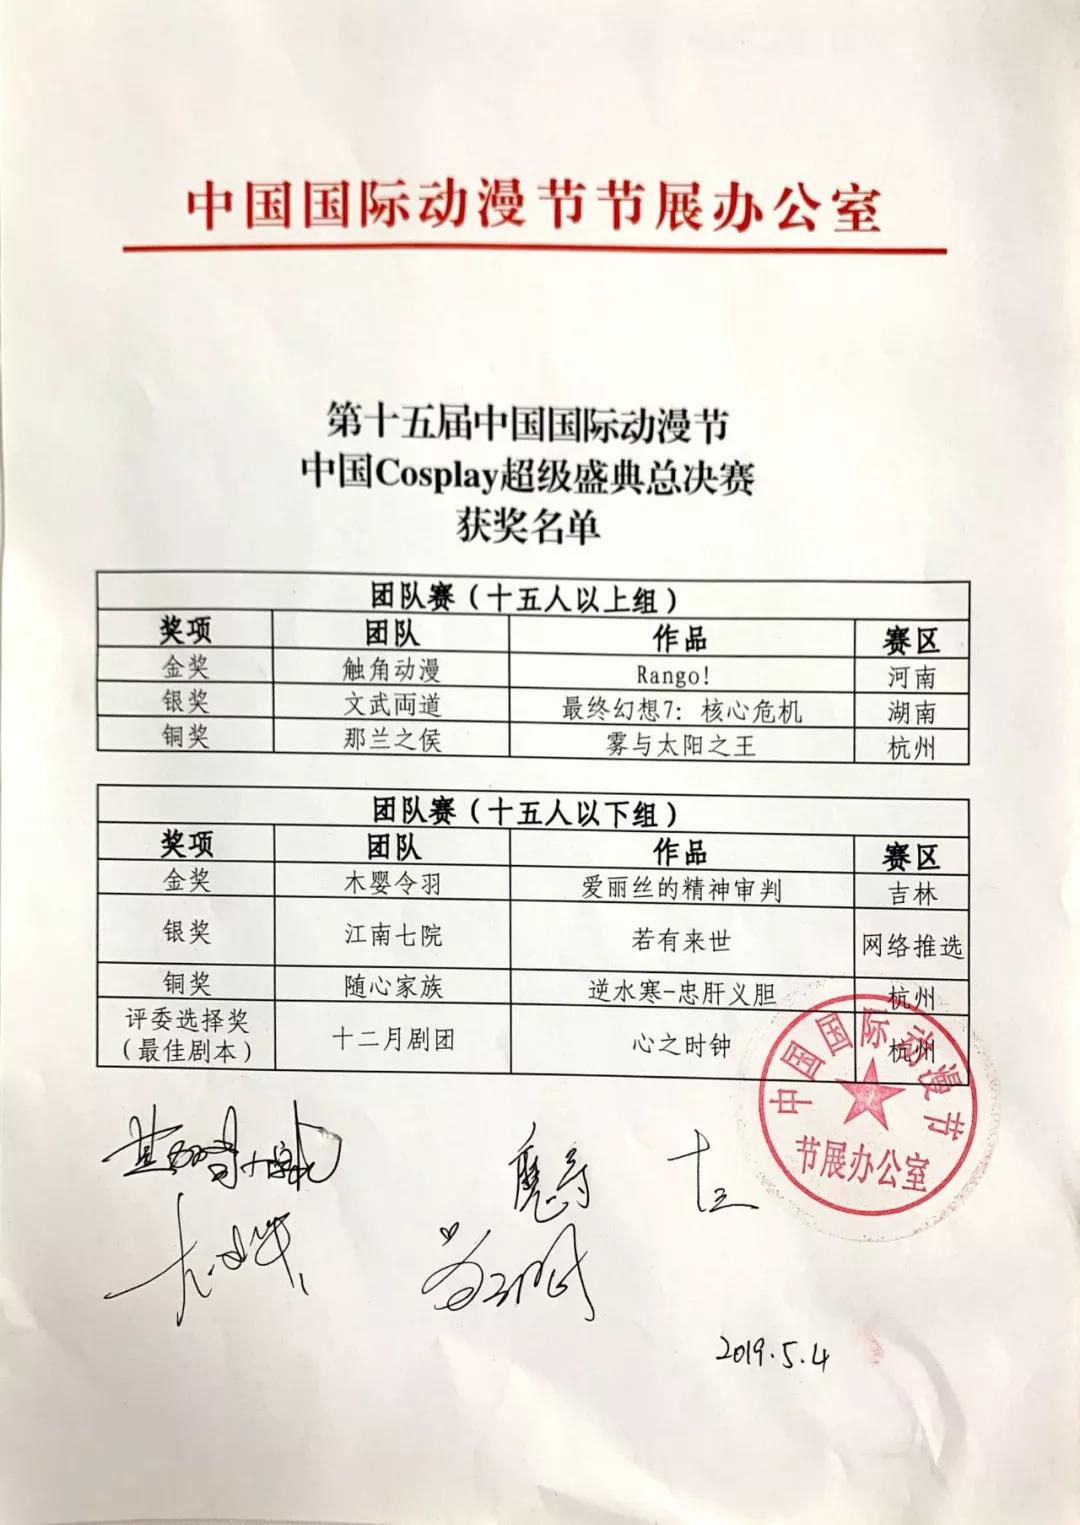 中国国际动漫节节展办公室
第十五届中国国际动漫节
中国Cosplay超级盛典总决赛
获奖名单
团队赛（十五人以上组）
奖项 团队 作品 赛区
金奖 触角动漫 Rango! 河南
银奖 文武両道 最终幻想7：核心危机 湖南
铜奖 那兰之侯 雾与太阳之王 杭州
团队赛（十五人以下组）
奖项 团队 作品 赛区
金奖 木婴令羽 爱丽丝的精神审判 吉林
银奖 江南七院 若有来世 网络推选
铜奖 随心家族 逆水寒-忠肝义胆 杭州
评委选择奖
（最佳剧本） 十二月剧团 心之时钟 杭州
中国国际动漫节
节展办公室
十三
2019.5.4